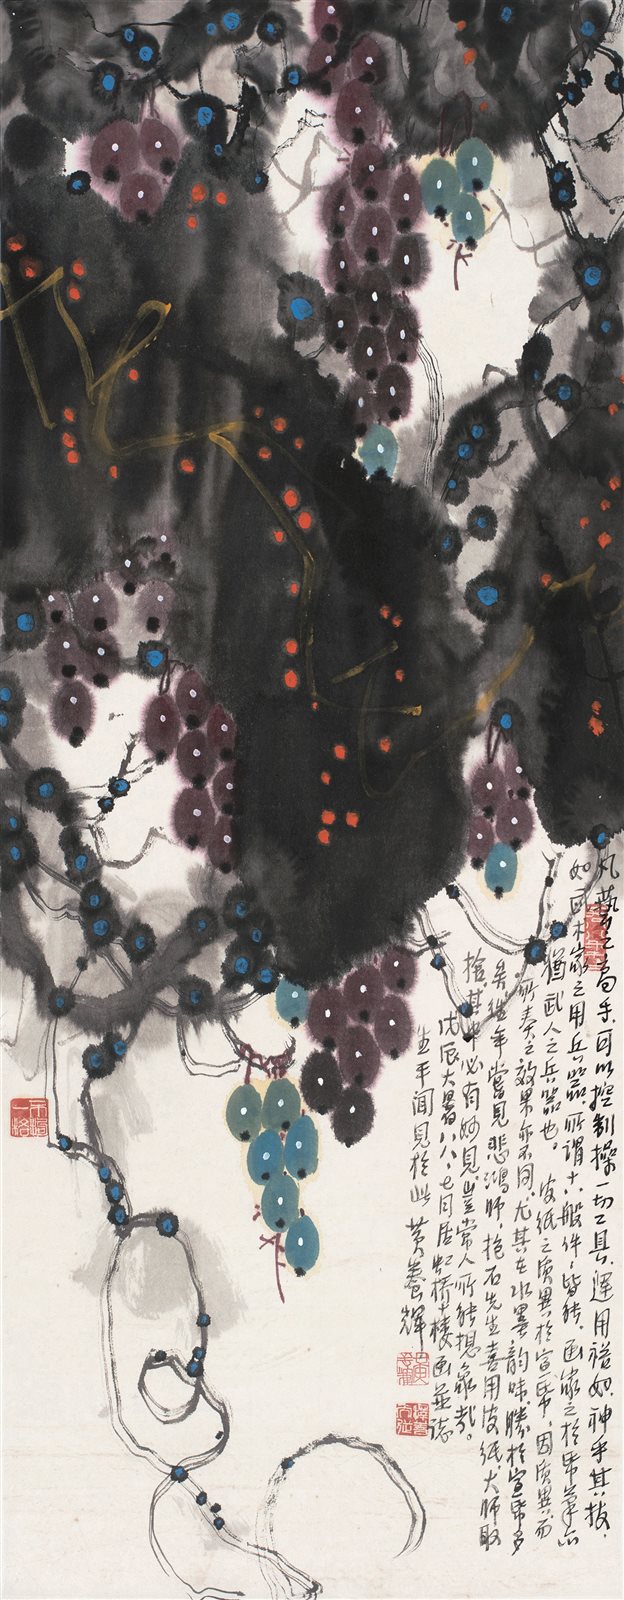 凡艺之高手，可以控制操一切工具，运用裕如，神乎其技，
如武术家之用兵器，所谓十八般件件皆能，画家之于纸笔亦
犹武人之兵器也。皮纸之质异于宣纸，因质异而
所奏之效果亦不同，尤其在水墨韵味，胜于宣纸多
矣。往年尝见悲鸿师、抱石先生喜用皮纸，大师取
舍，其中必有妙见，岂常人所能想象哉。
戊辰大暑八八、七月居虹桥楼画并志
生平闻见于此 黄养辉
不拘一格